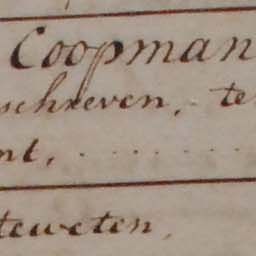 Coopman
schreven, te
nt, . . . . . . .
teweten,